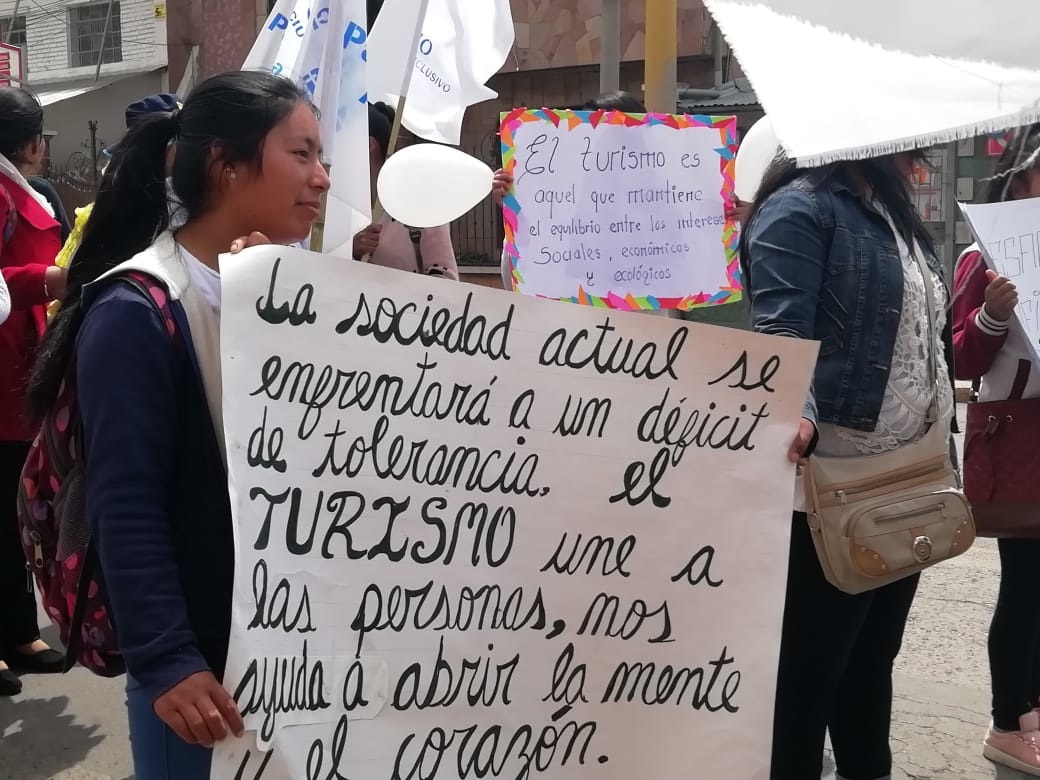 El turismo es
aquel que mantiene
el equilibrio entre los interese
Sociales, económicos
y ecológicos
La sociedad actual se
enfrentará a un déficit
de tolerancia, el
TURISMO une a
las personas, nos
ayuda a abrir la mente
y el corazón.